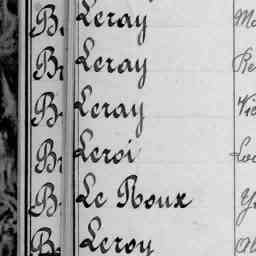 B. Leray
B Leray
B Leray
B Leroi
B Le Roux
B Leroy